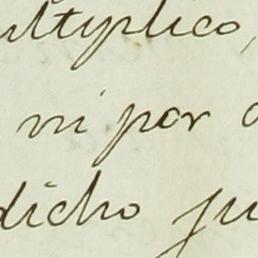 ultyplico,
ni por
dicho ju